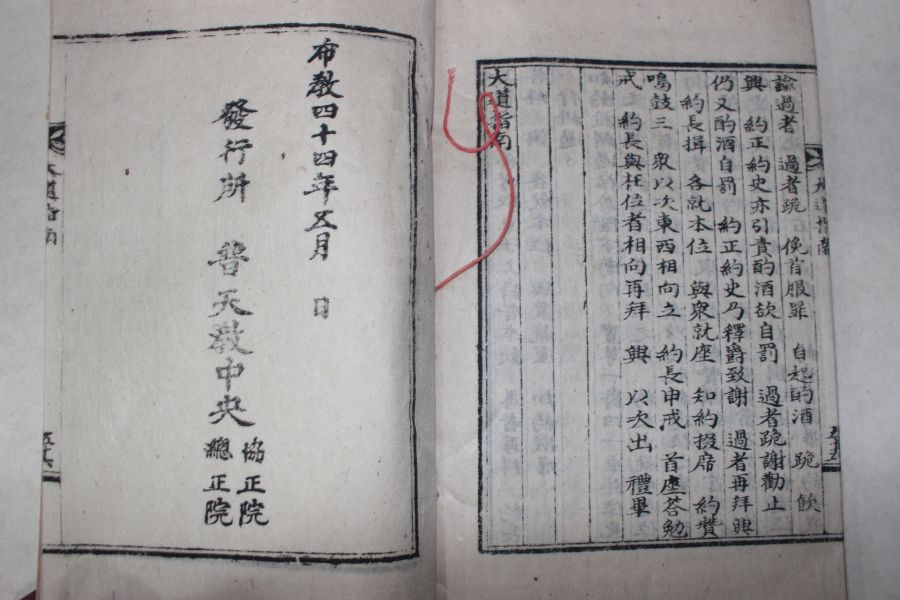 大道指南
五十五
諭過者 過者跪 俛首服罪 自起酌酒 跪飮
興 約正約史亦引責酌酒欲自罰 過者跪謝勸止
仍又酌酒自罰 約正約史乃釋爵致謝 過者再拜興
約長揖 各就本位 與衆就座 知約掇席 約贊
鳴鼓三 衆以次東西相向立 約長申戒 首座答勉
戒 約長與在位者相向再拜 興 以次出 禮畢
大道指南
布敎四十四年五月 日
發行所 普天敎中央 協正院
總正院
大道指南
五十六